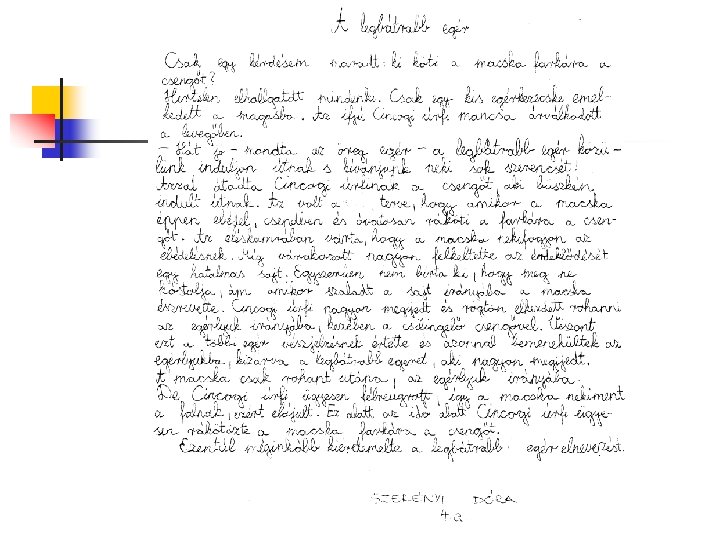 A legbátrabb egér
Csak egy kérdésem maradt: ki köti a macska farkára a
csengőt?
Hirtelen elhallgatott mindenki. Csak egy kis egérkezecske emel-
kedett a magasba. Az ifjú Cincorgi úrfi mancsa árválkodott
a levegőben.
- Hát jó - mondta az öreg egér - a legbátrabb egér közü-
lünk induljon útnak s kívánjunk neki sok szerencsét!
Azzal átadta Cincorgi úrfinak a csengőt, aki büszkén
indult útnak. Az volt a terve, hogy amikor a macska
éppen ebédel, csendben és óvatosan ráköti a farkára a csen-
gőt. Az éléskamrában várta, hogy a macska nekifogjon az
ebédelésnek. Míg várakozott nagyon felkeltette az érdeklődését
egy hatalmas sajt. Egyszerűen nem bírta ki, hogy meg ne
kóstolja, ám amikor szaladt a sajt irányába a macska
észrevette. Cincorgi úrfi nagyon megijedt és rögtön elkezdett rohanni
az egérlyuk irányába, kezében a csilingelő csengővel. Viszont
ezt a többi egér vészjelzésnek értette és azonnal bemenekültek az
egérlyukba, kizárva a legbátrabb egeret, aki nagyon megijedt.
A macska csak rohant utána, az egérlyuk irányába.
De, Cincorgi úrfi ügyesen félreugrott, így a macska nekiment
a falnak, ezért elájult. Ez alatt az idő alatt Cincorgi úrfi ügye-
sen rákötözte a macska farkára a csengőt.
Ezentúl méginkább kiérdemelte a legbátrabb egér elnevezést.
SZERÉNYI DÓRA
4.a